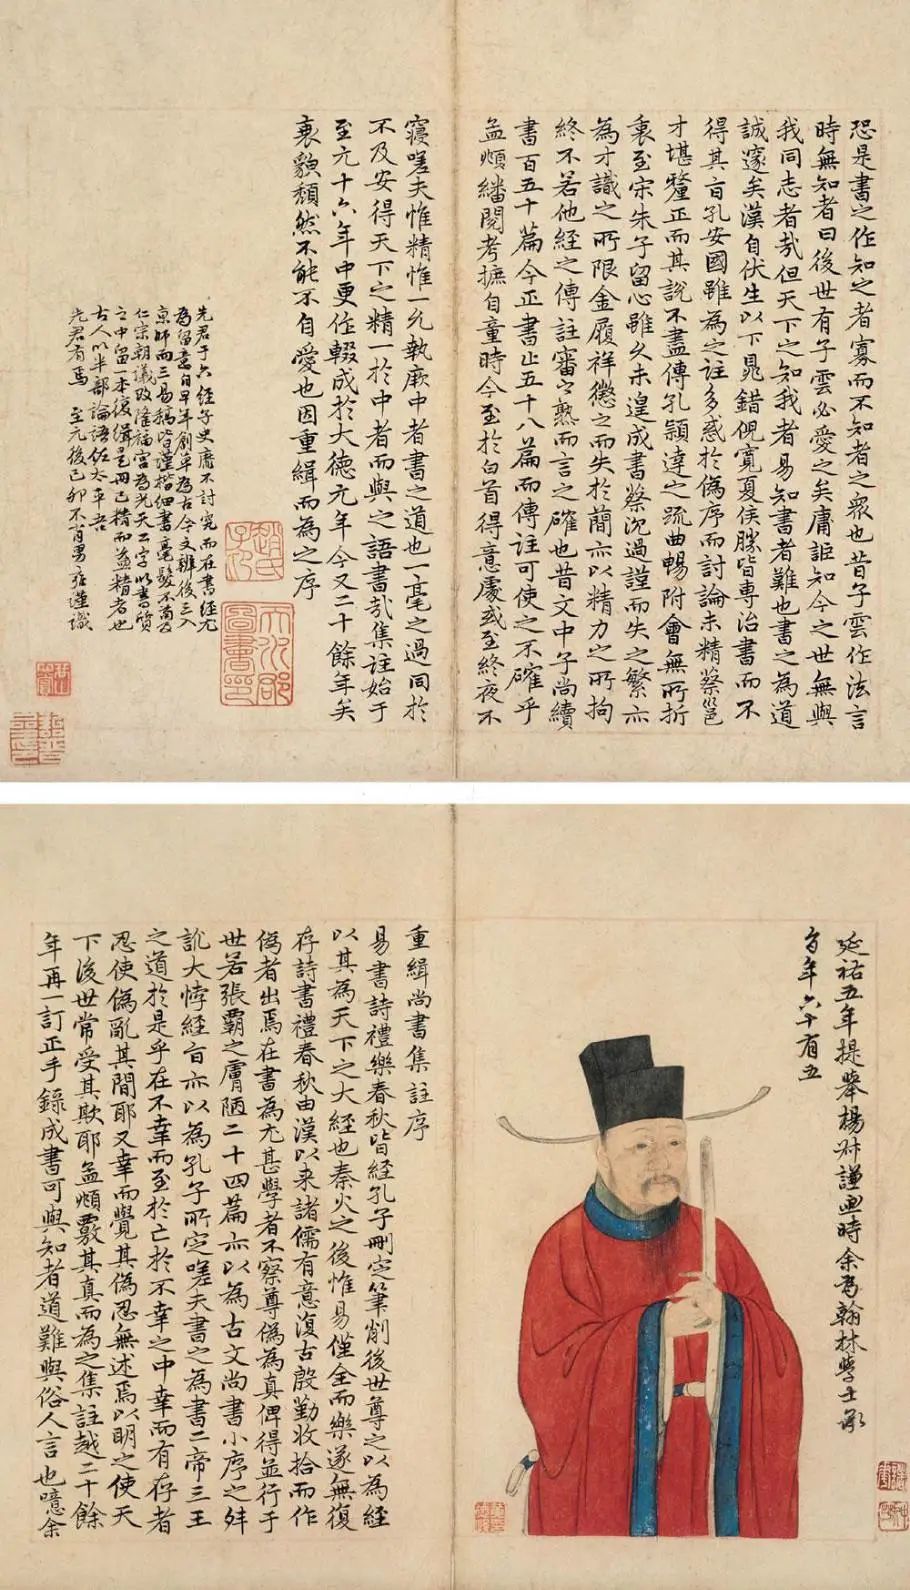 恐是書之作知之者寡而不知者之衆也昔子雲作法言
時無知者曰後世有子雲必愛之矣庸詎知今之世無與
我同志者哉但天下之知我者易知書者難也書之為道
誠邃矣漢自伏生以下晁錯倪寬夏侯勝皆專治書而不
得其旨孔安國雖為之註多惑於偽序而討論未精蔡邕
才堪釐正而其說不盡傳孔穎達之疏曲暢附會無所折
衷至宋朱子留心雖久未遑成書蔡沈過謹而失之繁亦
為才識之所限金履祥懲之而失於簡亦以精力之所拘
終不若他經之傳註審之熟而言之確也昔文中子尚續
書百五十篇今正書止五十八篇而傳註可使之不確乎
孟頫繙閱考摭自童時今至於白首得意處或至終夜不
寢嗟夫惟精惟一允執厥中者書之道也一毫之過同於
不及安得天下之精一於中者而與之語書哉集註始于
至元十六年中更作輟成於大德元年今又二十餘年矣
衰貌頹然不能不自愛也因重緝而為之序
趙氏子昂
天水郡圖書印
先君于六經子史靡不討究而在書經尤
為留意自早年創草為古今文辨後三入
京師而三易稿皆謹楷細書毫髮不苟及
仁宗朝議改隆福宮為光天二字以書質
之中留一本復緝是冊已精而益精者也
古人以半部論語佐太平吾
先君有焉 至元後己卯不肖男雍謹識
延祐五年提舉楊叔謙画時余為翰林學士承
旨年六十有五
重緝尚書集註序
易書詩禮樂春秋皆經孔子刪定筆削後世尊之以為經
以其為天下之大經也秦火之後惟易僅全而樂遂無復
存詩書禮春秋由漢以來諸儒有意復古殷勤收拾而作
偽者出焉在書為尤甚學者不察尊偽為真俾得並行于
世若張霸之膚陋二十四篇亦以為古文尚書小序之舛
訛大悖經旨亦以為孔子所定嗟夫書之為書二帝三王
之道於是乎在不幸而至於亡於不幸之中幸而有存者
忍使偽亂其間耶又幸而覺其偽忍無述焉以明之使天
下後世常受其欺耶孟頫覈其真而為之集註越二十餘
年再一訂正手錄成書可與知者道難與俗人言也噫余